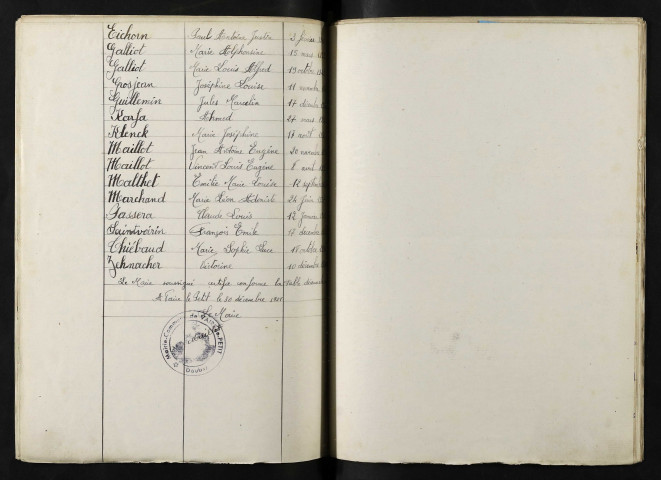 Eichorn Paul Antoine Justin 2
Galliot Marie Alphonsine 15 mars
Galliot Marie Louis Alfred 19 octobre
Grosjean Joséphine Louise 11 novembre
Guillemin Jules Marcelin 17 décembre
Karfa Ahmed 27 mars
Klenck Marie Joséphine 11 août
Maillot Jean Antoine Eugène 20 novembre
Maillot Vincent Louis Eugène 8
Malthet Emilie Marie Louise 12 septembre
Marchand Marie Léon 24 juin
Passera Claude Louis 12 Janvier
Saintvoirin François Emile 17 décembre
Thiébaud Marie Sophie 18 octobre
Zehnacher Victorine 10 décembre
Le Maire soussigné certifie conforme la table
A Vaire le Petit le 30 décembre
Le Maire
Mairie Commune de VAIRE-le-PETIT
Doubs